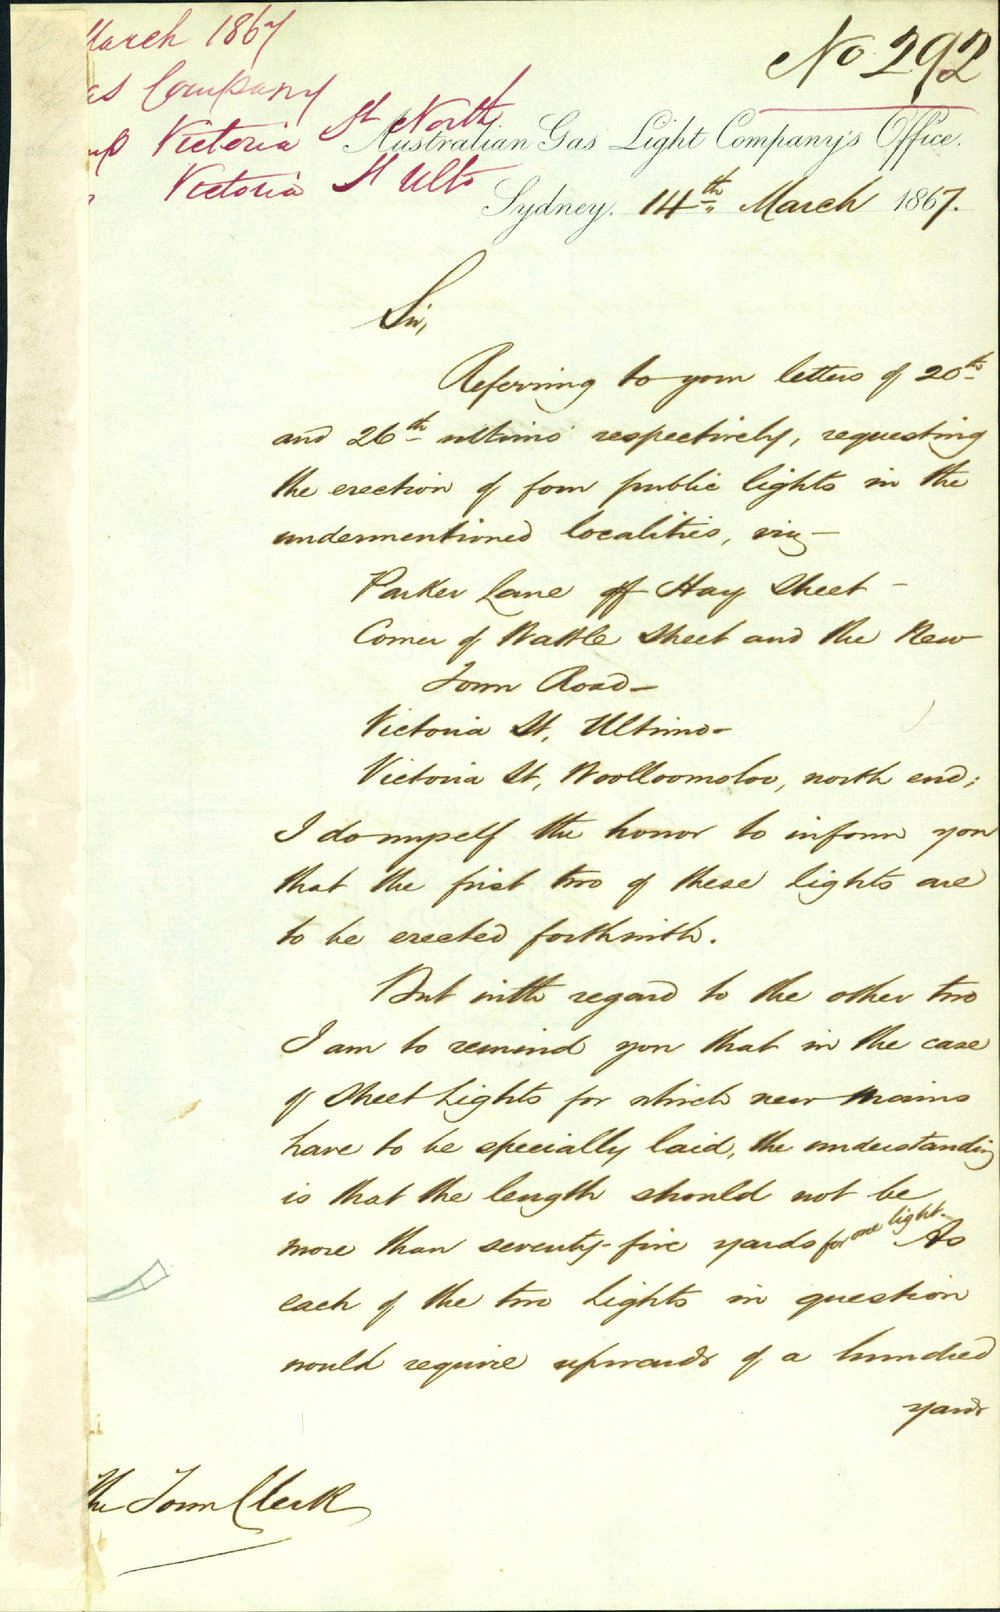 March 1867
as Company
mp Victoria St North
Victoria St Ulto
No 292
Australian Gas Light Company's Office.
Sydney, 14th March 1867.
Sir,
Referring to your letters of 20th
and 26th ultimo respectively, requesting
the erection of four public lights in the
undermentioned localities, viz—
Parker Lane off Hay Street—
Corner of Wattle Street and the New
Town Road—
Victoria St, Ultimo—
Victoria St, Woolloomoloo, north end;
I do myself the honor to inform you
that the first two of these lights are
to be erected forthwith.
But with regard to the other two
I am to remind you that in the case
of Street Lights for which new mains
have to be specially laid, the understanding
is that the length should not be
more than seventy-five yards for one light. As
each of the two Lights in question
would require upwards of a hundred
yards
The Town Clerk